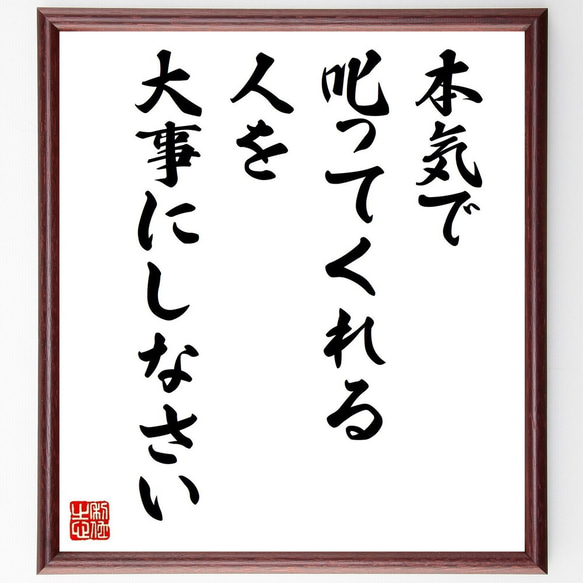 本気で
叱ってくれる
人を
大事にしなさい